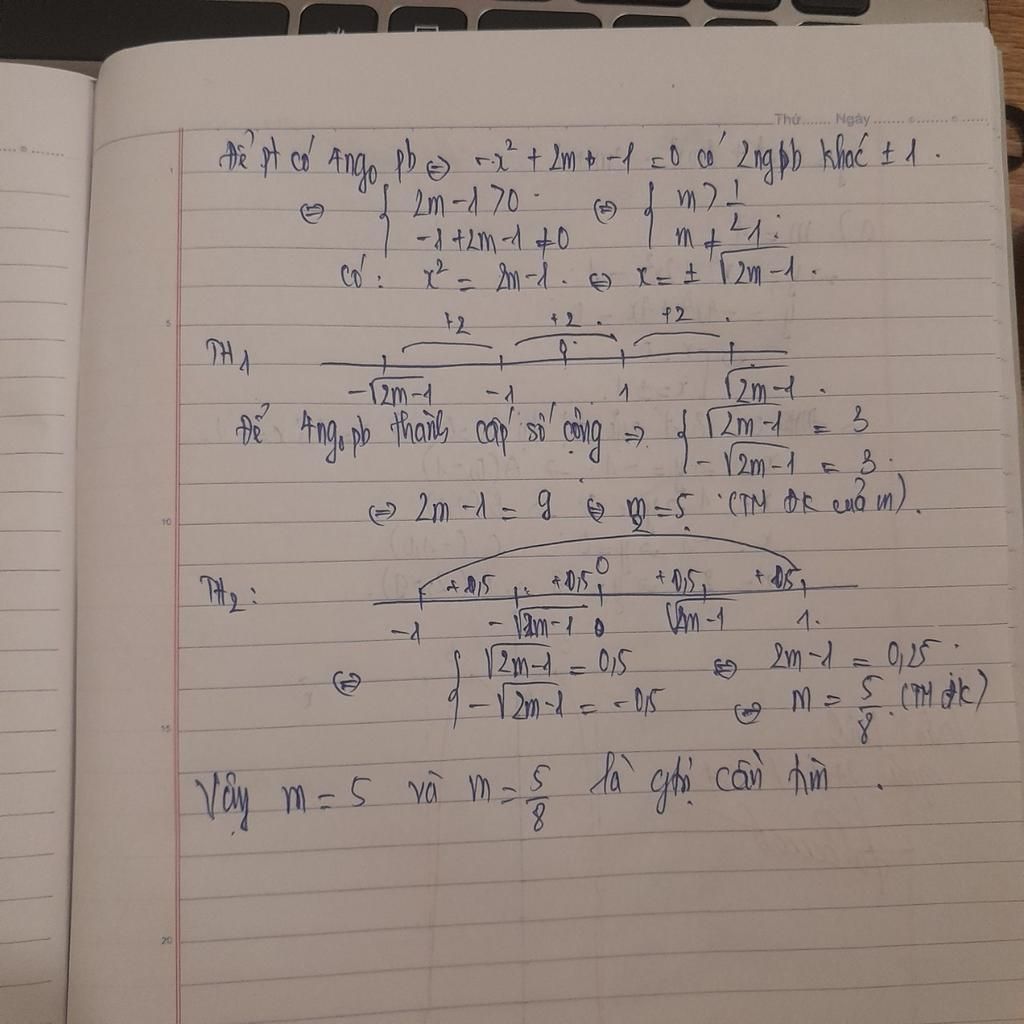 Thứ....... Ngày ....... ....... .......
Để pt có 4ngo pb ⇔ -x² + 2m -1 = 0 có 2ngpb khác ± 1 .
⇔ { 2m-1 > 0 ⇔ { m > 1/2
-1+2m-1 ≠ 0 m ≠ 1 .
Có : x² = 2m-1 . ⇔ x = ± √2m-1 .
+2 +2 . +2 .
TH1 0
-√2m-1 -1 1 √2m-1 .
Để 4ngo pb thành cấp số cộng ⇒ { √2m-1 = 3
-√2m-1 = 3 .
⇔ 2m-1 = 9 ⇔ m = 5 . (TM ĐK của m) .
2
TH2 : +0,5 +0,5 0 +0,5 +0,5
-1 -√2m-1 0 √2m-1 1 .
⇔ { √2m-1 = 0,5 ⇔ 2m-1 = 0,25 .
-√2m-1 = -0,5 ⇔ m = 5/8 . (TM ĐK)
Vậy m = 5 và m = 5/8 là gtrị cần tìm .
5
10
15
20